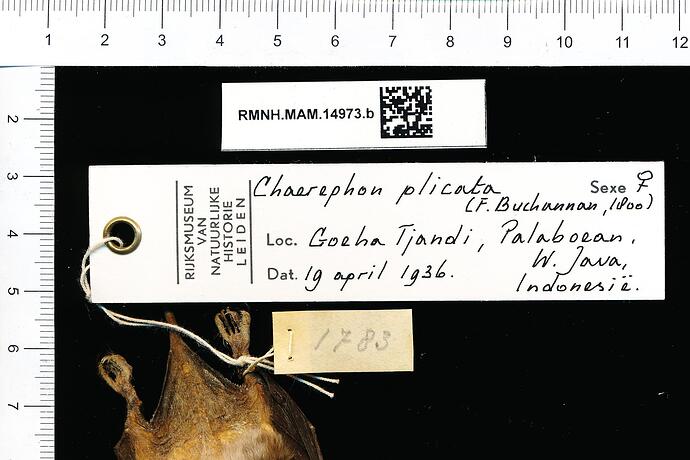 1 2 3 4 5 6 7 8 9 10 11 12
2
3
4
5
6
7
RMNH.MAM.14973.b
RIJKSMUSEUM
VAN
NATUURLIJKE
HISTORIE
LEIDEN
Chaerephon plicata Sexe ♀
(F. Buchannan, 1800)
Loc. Goeha Tjandi, Palaboean,
W. Java,
Dat. 19 april 1936.
Indonesië.
1783